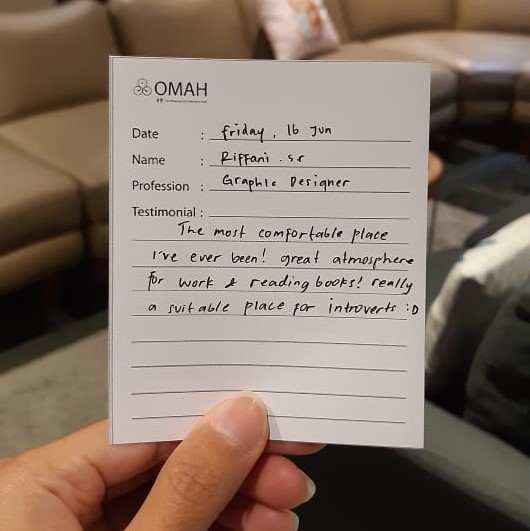 OMAH
Date : Friday, 16 Jun
Name : Riffani .sr
Profession : Graphic Designer
Testimonial :
The most comfortable place
I've ever been! great atmosphere
for work & reading books! really
a suitable place for introverts :D